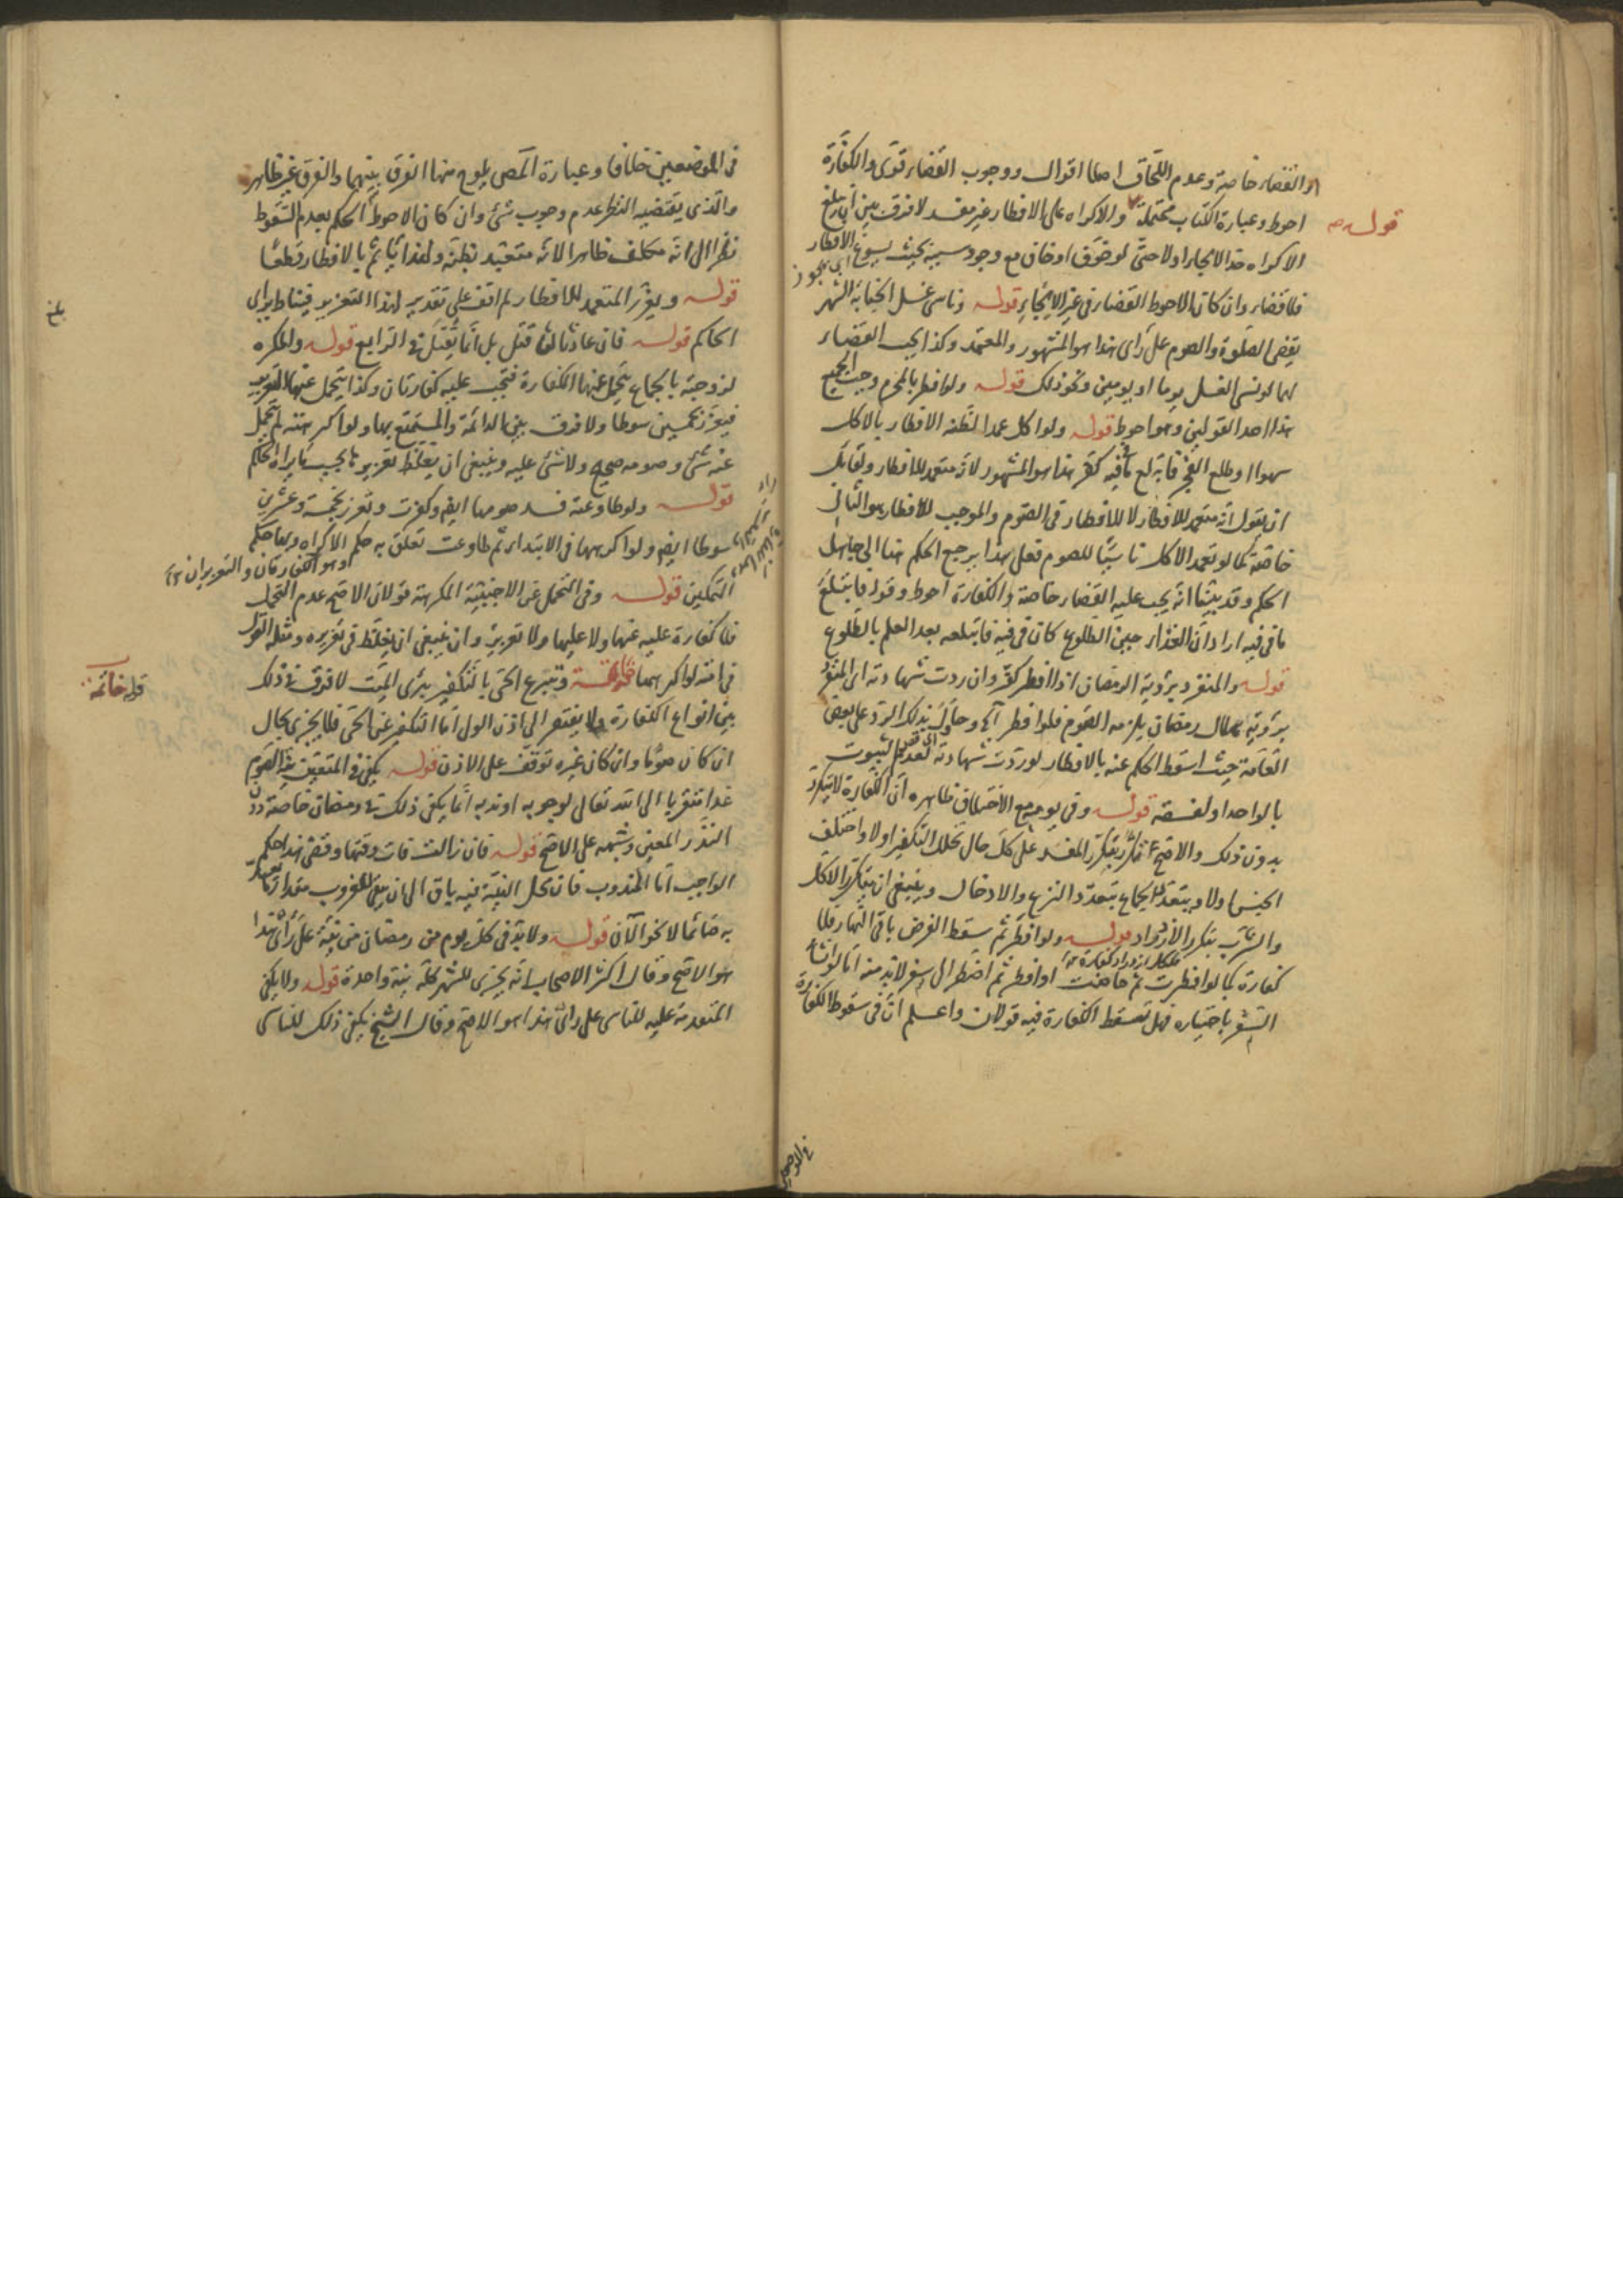 والقضاء خاصة وعدم اللحاق اصلا اقوال ووجوب القضاء قوى والكفارة
احوط وعبارة الكتاب محتملة والاكراه على الافطار غير مفسد لا فرق بين ان يبلغ
قوله
الاكراه حد الالجاء اولا حتى لو خوف او خاف مع وجود سببه بحيث يسوغ الافطار
اى يجوز
فلا قضاء وان كان الاحوط القضاء فى غير الايجاء قوله وناسى غسل الجنابة الشهر
يقضى الصلوة والصوم على راى هذا هو المشهور والمعتمد وكذا يجب القضاء
لهما لو نسى الغسل يوما او يومين ونحو ذلك قوله ولو افطر بالمحرم وجب الجميع
هذا احد القولين وهو احوط قوله ولو اكل عمدا لظنه الافطار بالاكل
سهوا او طلع الفجر فابتلع ما فى فيه كفر هذا هو المشهور لانه متعمد للافطار ولقائل
ان يقول انه متعمد للافطار لا للافطار فى الصوم والموجب للافطار هو الثانى
خاصة كما لو تعمد الاكل ناسيا للصوم فعلى هذا يرجع الحكم هنا الى جاهل
الحكم وقد بينا انه يجب عليه القضاء خاصة والكفارة احوط وقوله فابتلع
ما فى فيه اراد ان الغذاء حين الطلوع كان فى فيه فابتلعه بعد العلم بالطلوع
قوله والمنفرد برؤية الرمضان اذا افطر كفر وان ردت شهادته اى المنفرد
برؤية هلال رمضان يلزمه الصوم فلو افطر اثم وحاول بذلك الرد على بعض
العامة حيث اسقط الحكم عنه بالافطار لو ردت شهادته لعدم الثبوت
بالواحد او لفسقه قوله وفى يوم مع الاختلاف ظاهره ان الكفارة لا تتكرر
بدون ذلك والاصح تكرر بتكرر المفسد على كل حال تخلل التكفير اولا واختلف
الجنس اولا ويتعدد الجماع بتعدد النزع والادخال وينبغى ان يتكرر الاكل
والشرب بتكرر الازدراد قوله ولو افطر ثم سقط الفرض باقى النهار فلا
فلكل ازدراد كفارة
كفارة كما لو افطرت ثم حاضت او افطر ثم اضطر الى سفر لا بد منه اما لو انشأ
السفر باختياره فهل تسقط الكفارة فيه قولان واعلم ان فى سقوط الكفارة
فى الموضعين خلافا وعبارة المص يلوح منها الفرق بينهما والفرق غير ظاهر
والذى يقتضيه النظر عدم وجوب شئ وان كان الاحوط الحكم بعدم السقوط
نظرا الى انه مكلف ظاهرا لانه متعبد بظنه ولهذا ياثم بالافطار قطعا
قوله ويعزر المتعمد للافطار لم اقف على تقدير لهذا التعزير فيناط براى
بلغ
الحاكم قوله فان عاد ثالثا قتل بل انما يقتل فى الرابع قوله والمكره
لزوجته بالجماع يتحمل عنها الكفارة فتجب عليه كفارتان وكذا يتحمل عنها التعزير
فيعزر بخمسين سوطا ولا فرق بين الدائمة والمستمتع بها ولو اكرهته لم تتحمل
عنه شئ وصومه صحيح ولا شئ عليه وينبغى ان يغلظ تعزيرها بحسب ما يراه الحاكم
قوله ولو طاوعته فسد صومها ايضا وكفرت وتعزر بخمسة وعشرين
سوطا ايضا ولو اكرهها فى الابتداء ثم طاوعت تعلق به حكم الاكراه وبها حكم
وهو الكفارتان والتعزيران
التمكين قوله وفى التحمل عن الاجنبية المكرهة قولان الاصح عدم التحمل
فلا كفارة عليه عنها ولا عليها ولا تعزير وان ينبغى ان يغلظ فى تعزيره ومثله القول
فى امته لو اكرهها خاتمة وتبرع الحى بالتكفير يبرى الميت لا فرق فى ذلك
قوله خاتمة
بين انواع الكفارة ولا يفتقر الى اذن الولى اما التكفير عن الحى فلا يجزى بحال
ان كان صوما وان كان غيره توقف على الاذن قوله يكفى فى المتعين نية الصوم
غدا متقربا الى الله تعالى لوجوبه او ندبه انما يكفى ذلك فى رمضان خاصة دون
النذر المعين وشبهه على الاصح قوله فان زالت فات وقتها وقضى هذا حكم
الواجب اما المندوب فان محل النية فيه باق الى ان يبقى للغروب مقدار ما يصير
به صائما لا نحو الآن قوله ولا بد فى كل يوم من رمضان من نية على راى هذا
هو الاصح وقال اكثر الاصحاب انه يجزى للشهر كله نية واحدة قوله ولا يكفى
المتقدمة عليه للناسى على راى هذا هو الاصح وقال الشيخ يكفى ذلك للناسى